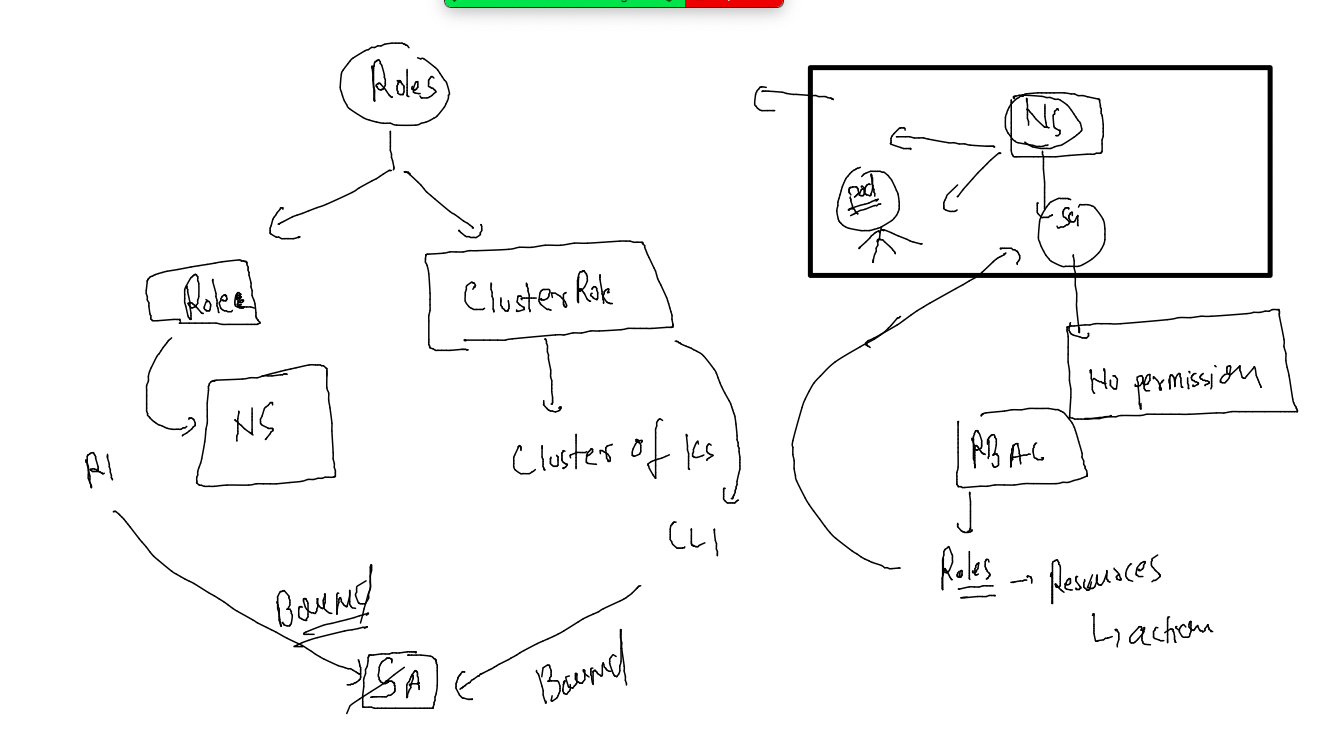 Roles
Role
ClusterRole
NS
R1
Cluster of K8s
CL1
Bound
SA
Bound
NS
pod
SA
No permission
RBAC
Roles → Resources
↳ action